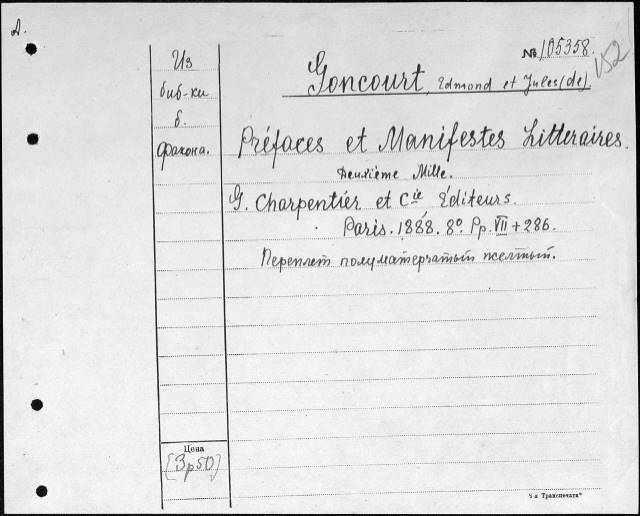 Д.
№ 105358.
152
Из
биб-ки
б.
Факона.
Goncourt, Edmond et Jules (de).
Préfaces et Manifestes Litteraires.
Deuxième Mille.
G. Charpentier et Cie Editeurs.
Paris. 1888. 8º. Pp. VII + 286.
Переплет полуматерчатый желтый.
Цена
[3р50]
5-я Транспечать"